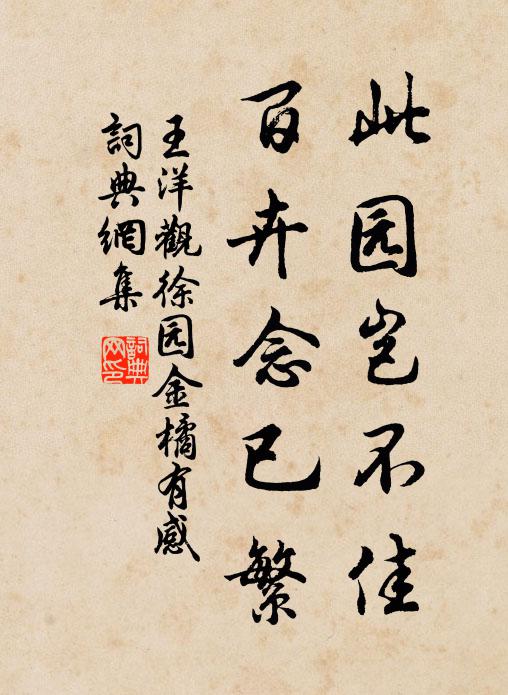 此园岂不佳
百卉念已繁
王洋觀徐园金橘有感
詞典網集
詞典網印